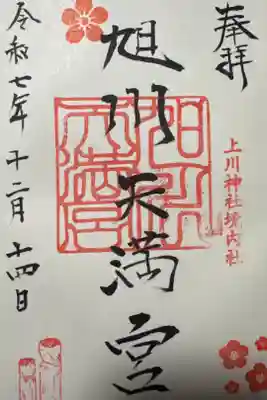 奉拝
上川神社境内社
旭川天満宮
令和七年十二月十四日